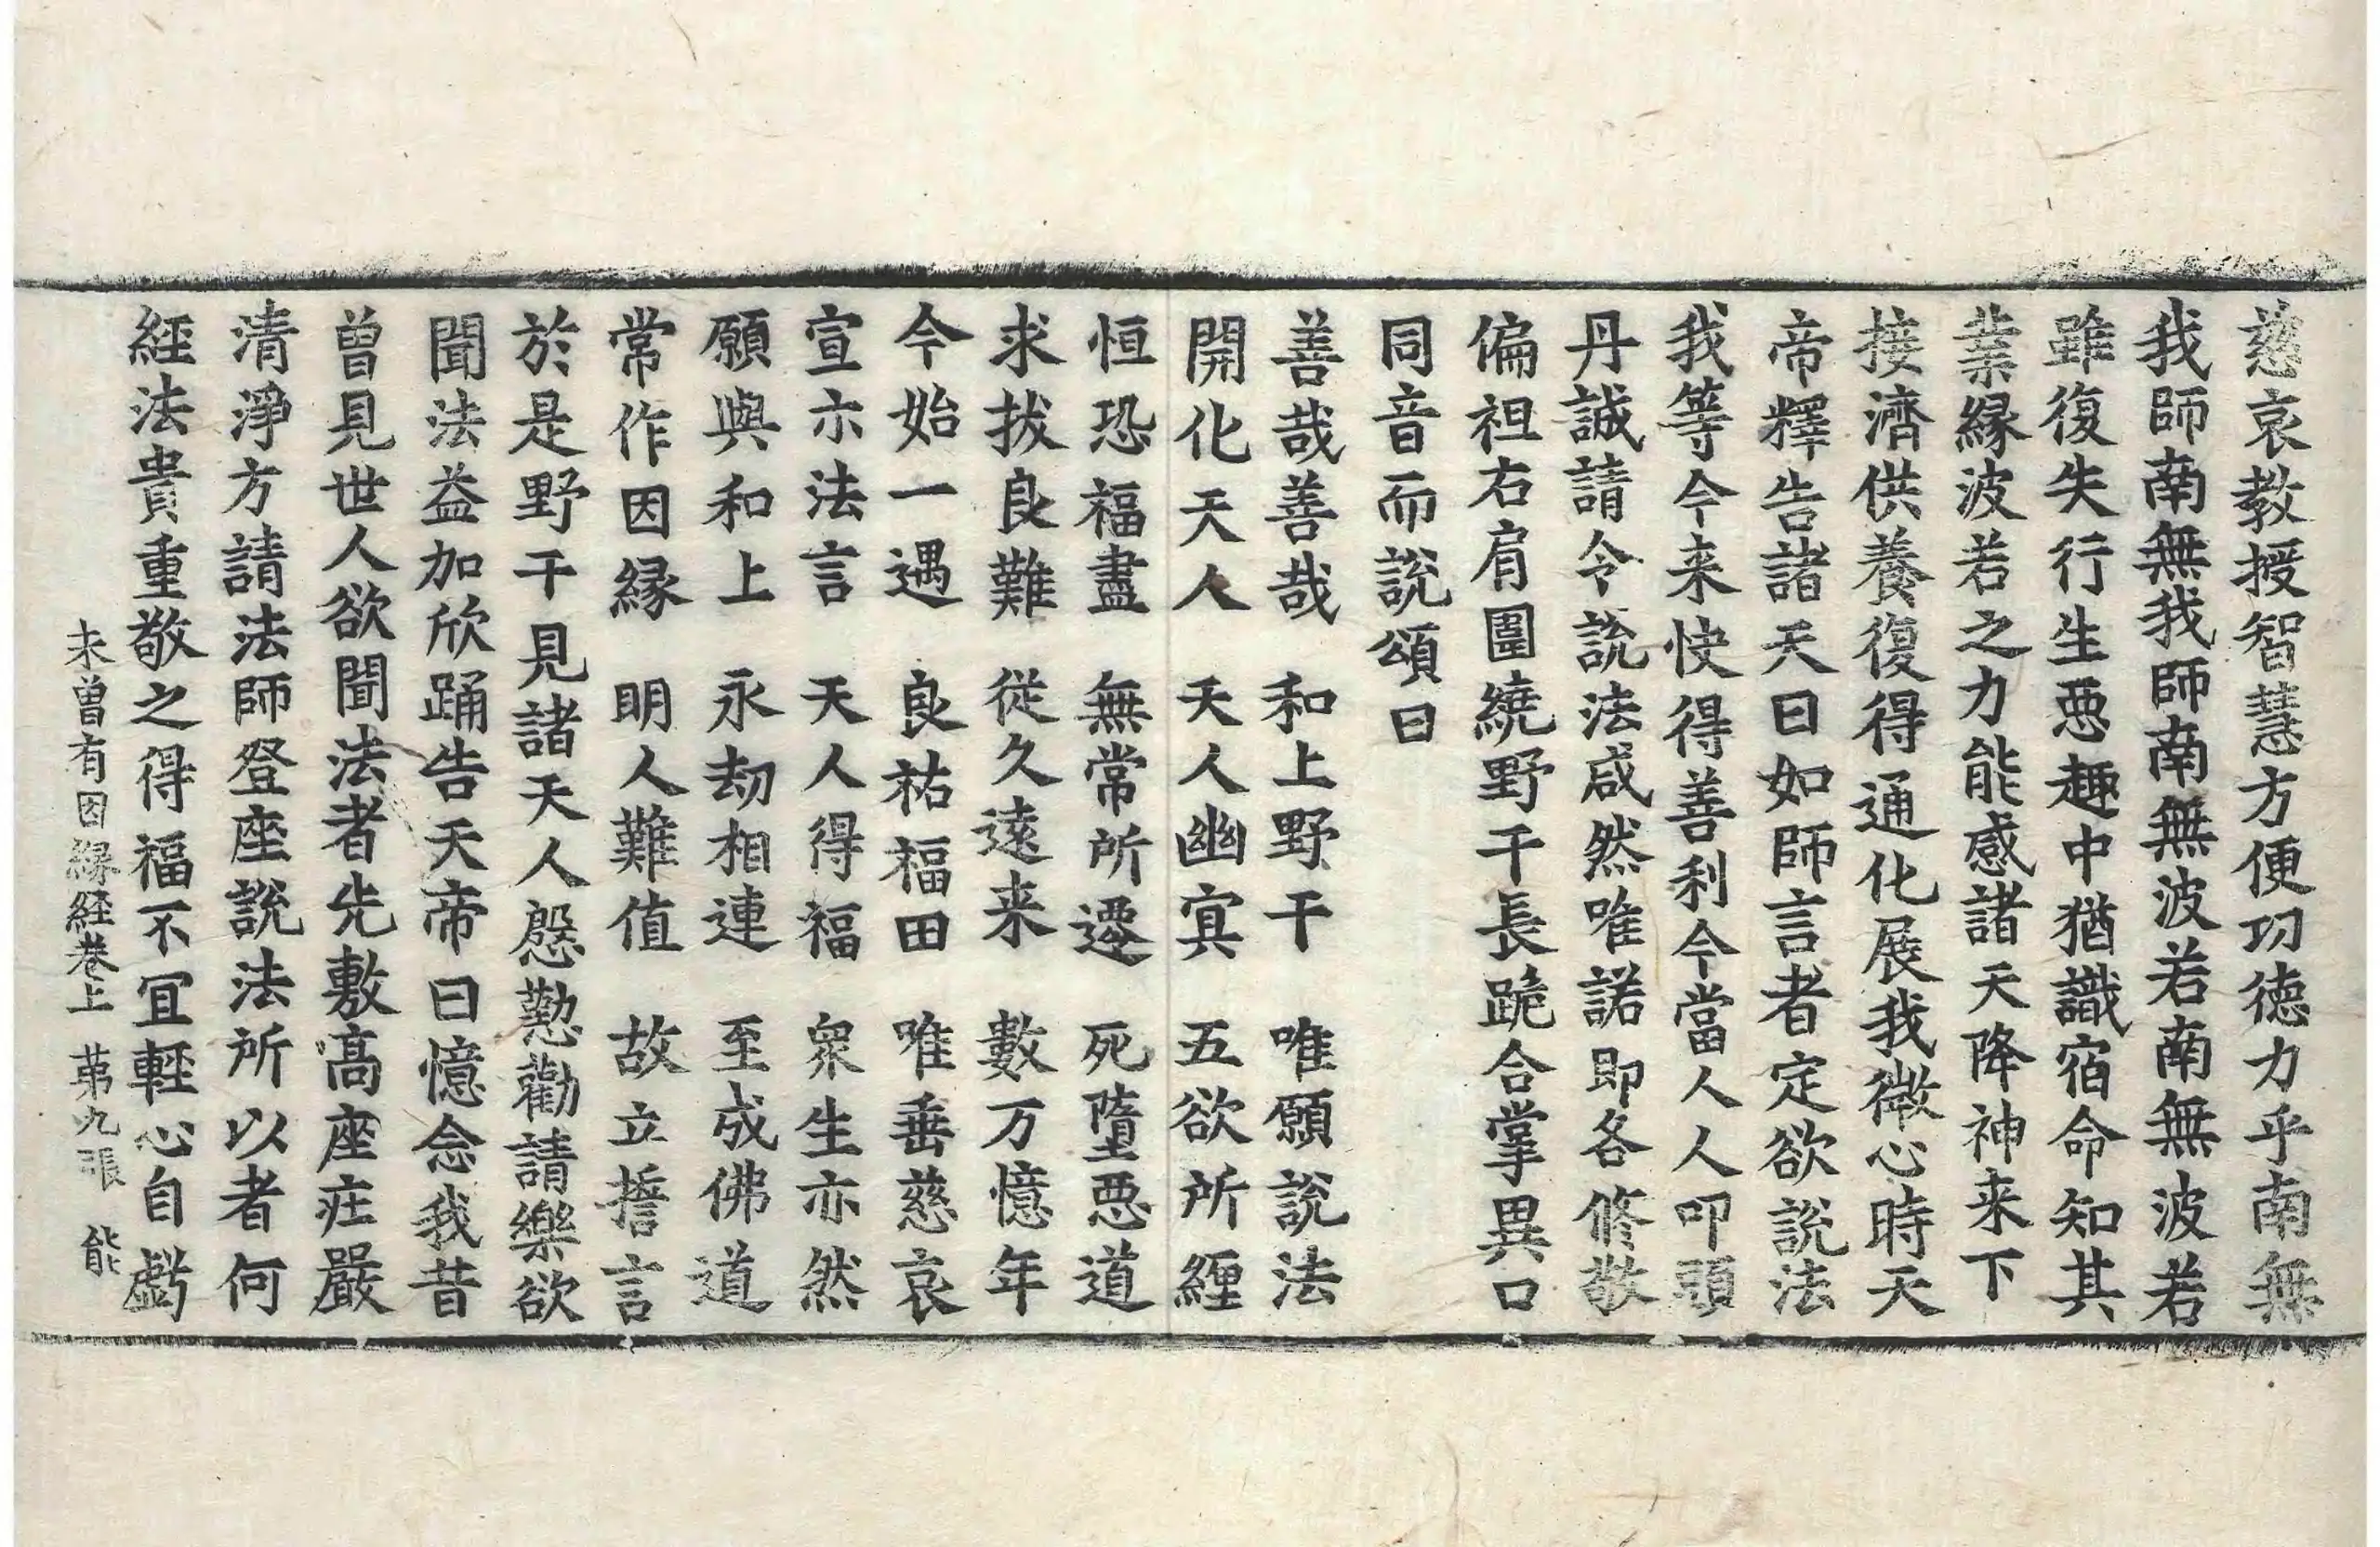 慈哀教授智慧方便功德力乎南無
我師南無我師南無波若南無波若
雖復失行生惡趣中猶識宿命知其
業緣波若之力能感諸天降神来下
接濟供養復得通化展我微心時天
帝釋告諸天曰如師言者定欲說法
我等今来快得善利今當人人叩頭
丹誠請令說法咸然唯諾即各脩敬
偏袒右肩圍繞野干長跪合掌異口
同音而說頌曰
善哉善哉　和上野干　唯願說法
開化天人　天人幽冥　五欲所經
恒恐福盡　無常所遷　死墮惡道
求拔良難　從久遠来　數万憶年
今始一遇　良祐福田　唯垂慈哀
宣示法言　天人得福　衆生亦然
願與和上　永劫相連　至成佛道
常作因緣　明人難值　故立誓言
於是野干見諸天人慇懃勸請樂欲
聞法益加欣踊告天帝曰憶念我昔
曾見世人欲聞法者先敷高座莊嚴
清淨方請法師登座說法所以者何
經法貴重敬之得福不冝輕心自虧
未曾有因緣経卷上　苐九張　能